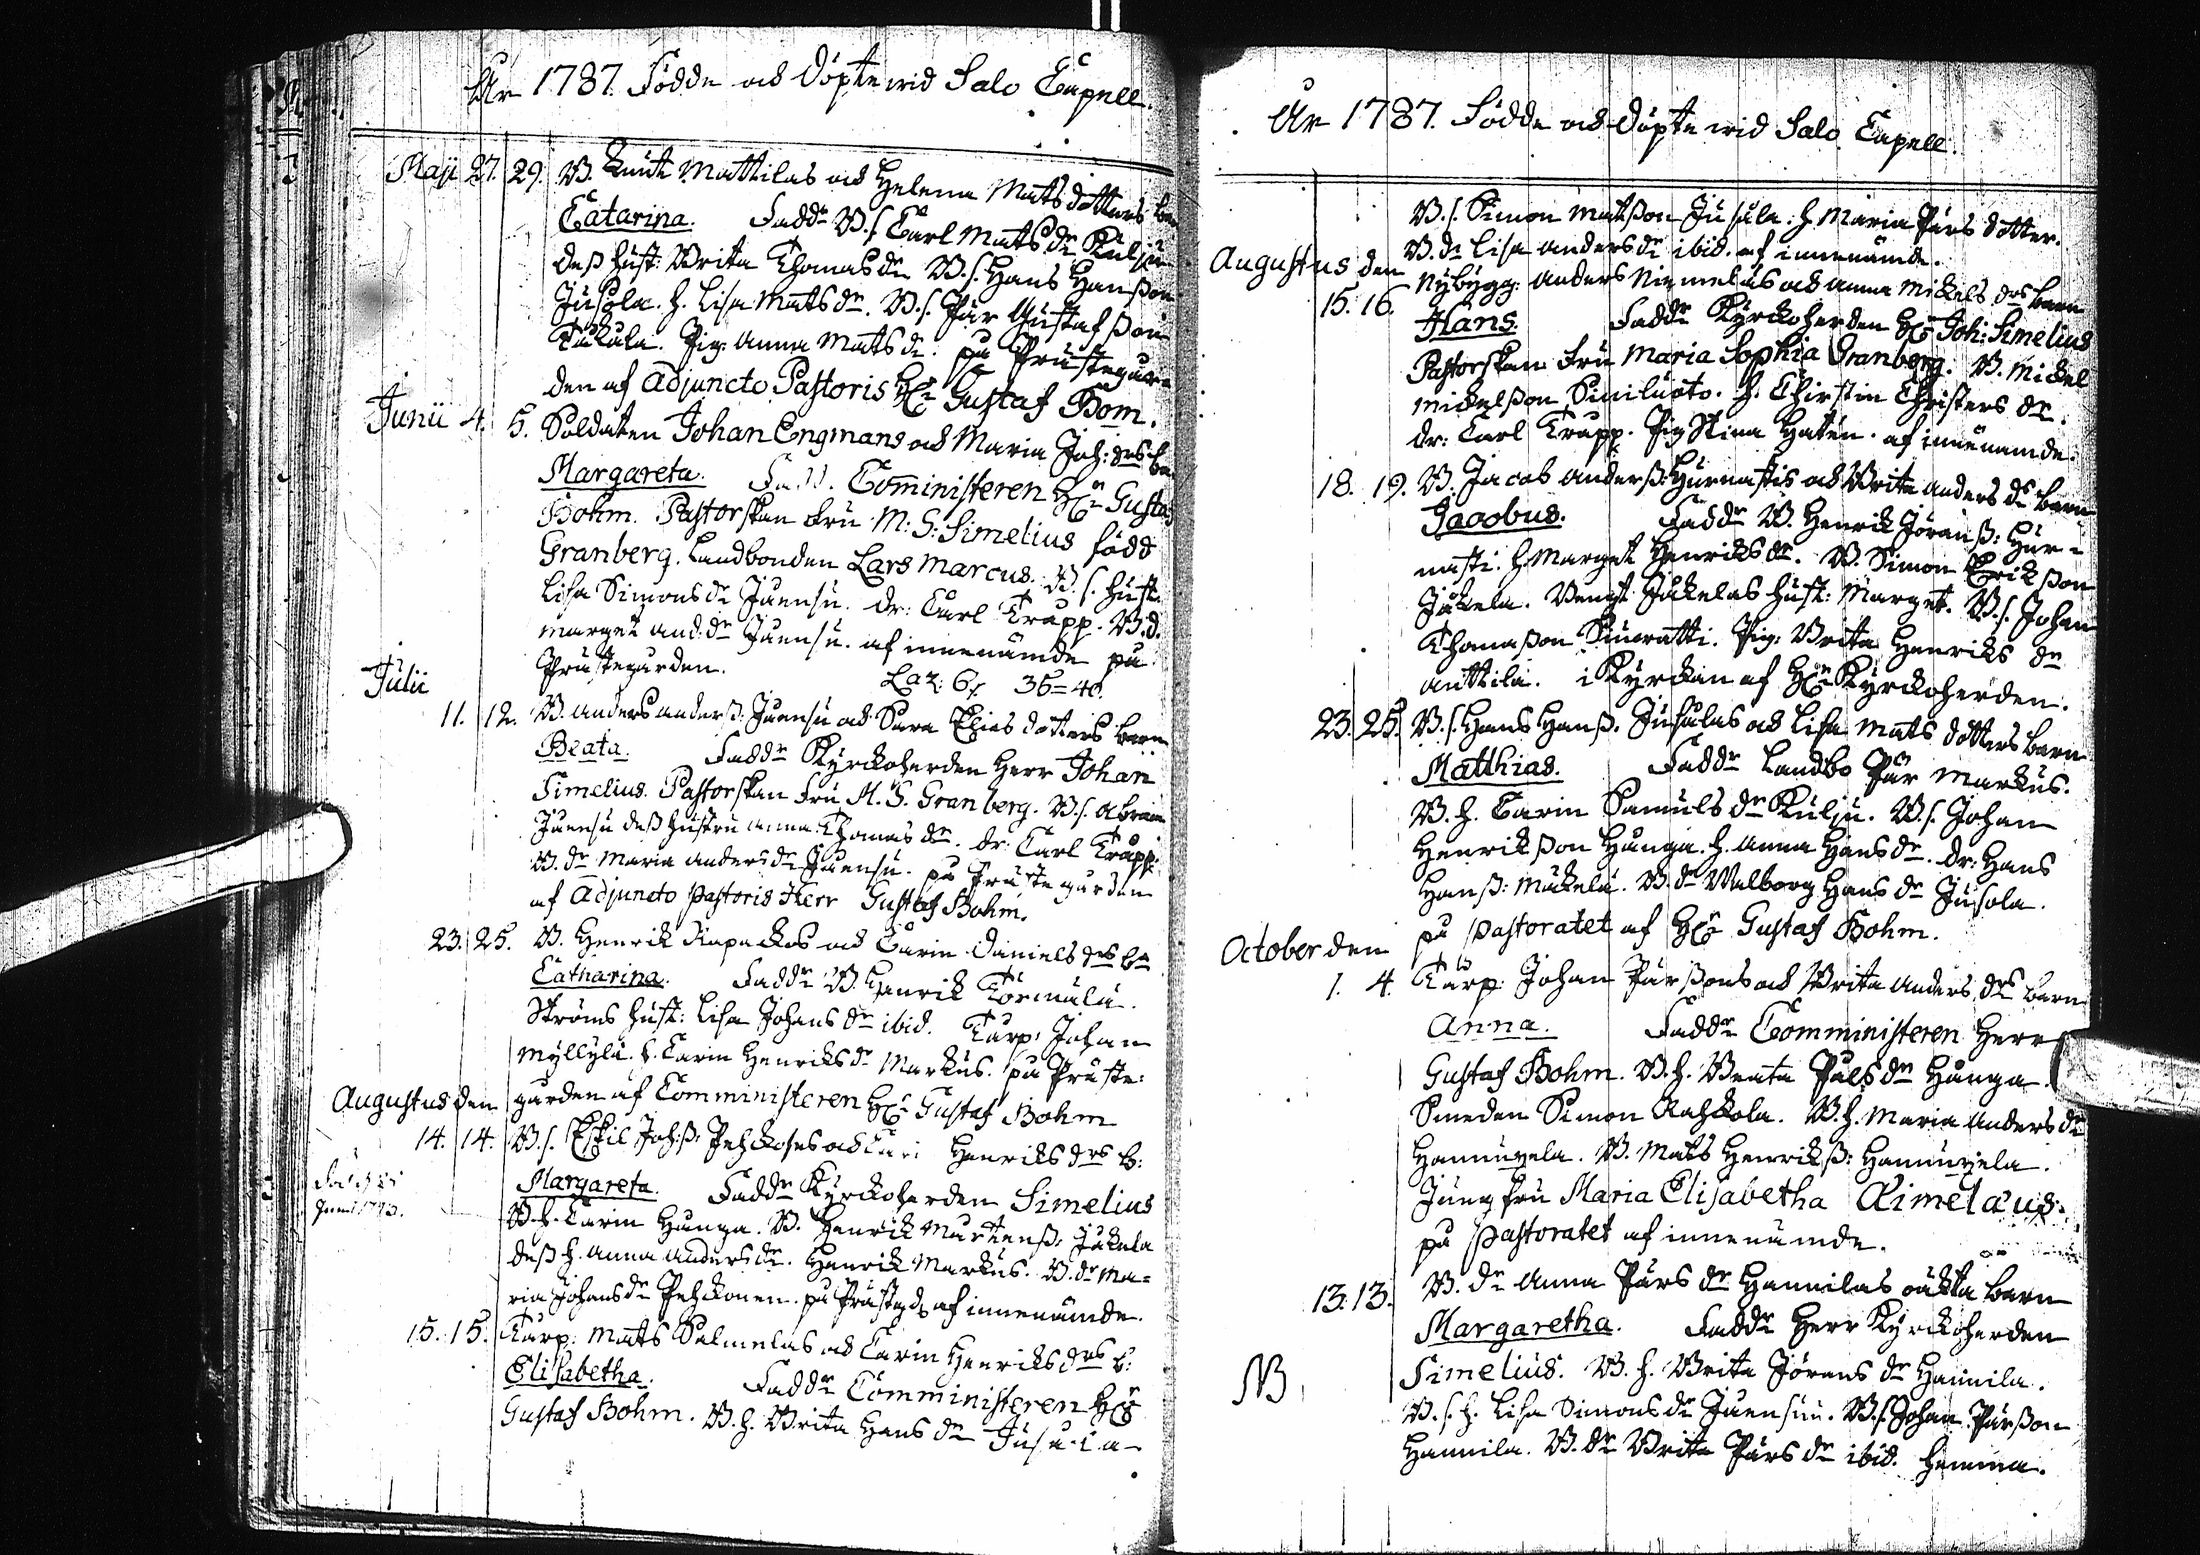 År 1787. Födde och Döpte wid Salo Capell.
Maji 27. 29. B. Knut Mattilas och Helena Mats dotters
Catarina. Fadd:r B.s. Carl Mats Kulju
deß hust: Brita Thomas d:r B.s. Hans Hanßon
Jusola. h. Lisa Mats d:r. B.s. Pår Gustafßon
Pig: Anna Mats d:r. på Prästegår-
den af Adjuncto Pastoris H:r Gustaf Bom.
Junii 4. 5. Soldaten Johan Engmans och Maria Joh: d:rs
Margareta. Fadd. Comministeren H:r Gustaf
Bohm. Pastorskan Fru M: S: Simelius född
Granberg. Landbonden Lars Marcus. B.s. hust.
Lisa Simons d:r Juensu. dr: Carl Trapp. B.d.
Marget And. d:r Juensu. af innenämde på
Prästegården. 36=40.
Julii
11. 12. B. Anders Anderß: Juensu och Sara Elias dotters barn
Beata. Fadd:r Kyrckoherden Herr Johan
Simelius. Pastorskan Fru M. S. Granberg. B.s. Abram
Juensu deß hustru Anna Thomas d:r. dr: Carl Trapp.
B. d:r Maria Anders d:r Juensu. på Prästegården
af Adjuncto Pastoris Herr Gustaf Bohm.
23. 25. B. Henrik Kapackas och Carin Daniels d:rs
Catharina. Fadd:r B. Henrik Törmälä.
Ströms hust: Lisa Johans d:r ibid. Torp: Johan
Myllylä. h. Carin Henriks d:r Markus. på Präste-
Augustus den gården af Comministeren H:r Gustaf Bohm
14. 14. B.s. Eskil Joh:ß: Pehckoses och Henriks d:rs b:
Margareta. Fadd:r Kyrckoherden Simelius
B.h. Carin Hanga. B. Henrik Mårtenß: Jäkela
deß h. Anna Anders d:r. Henrik Markus. B. d:r Ma=
ria Johans d:r Pehckonen. på Prästgd af innenämde.
15. 15. Torp: Mats Salmelas och Carin Henriks d:rs b:
Elisabetha. Fadd:r Comministeren H:r
Gustaf Bohm. B.h. Brita Hans d:r Jusula
År 1787. Födde och Döpte wid Salo Capell.
B.s. Simon Matßon Jusula. h. Maria Pårs dotter.
B. d:r Lisa Anders d:r ibid. af innenämde.
Augustus den
15. 16. Nybygg: Anders Niemeläs och Anna Mickels d:rs barn
Hans. Fadd:r Kyrckoherden H:r Joh: Simelius
Pastorskan Fru Maria Sophia Granberg. B. Mickel
Mickelßon Siniluoto. h. Christin Christers d:r.
dr: Carl Trapp. Pig Stina Hatén. af innenämde.
18. 19. B. Jacob Anderß: Hurnastis och Brita Anders d:rs barn
Jacobus. Fadd:r B. Henrik Jöranß: Hur-
nasti. h. Marget Henriks d:r. B. Simon Erikßon
Jäkela. Bengt Jäkelas hust: Marget. B.s. Johan
Thomaßon Pig: Brita Henriks d:r
Anttila. i Kyrckan af H:r Kyrckoherden.
23. 25. B.s. Hans Hanß. Jusulas och Lisa Mats dotters barn
Matthias. Fadd:r Landbo Pår Markus.
B. h. Carin Samuls d:r Kulju. B.s. Johan
Henrikßon Hanga. h. Anna Hans d:r. dr: Hans
Hanß: Mäkelä. B. d:r Walborg Hans d:r Jusola.
på Pastoratet af H:r Gustaf Bohm.
October den
1. 4. Torp: Johan Pårßons och Brita Anders d:rs barn
Anna. Fadd:r Comministeren Herr
Gustaf Bohm. B. h. Beata Påls d:r Hanga.
Smeden Simon Rahkola. B. h. Maria Anders d:r
Hannuxela. B. Mats Henrikß: Hannuxela.
Jungfru Maria Elisabetha Aimelæus.
på Pastoratet af innenämde.
13. 13. B. d:r Anna Pårs d:r Hannilas oäkta barn
Margaretha. Fadd:r Herr Kyrckoherden
NB Simelius. B. h. Brita Jörans d:r Hannila.
B.s. h. Lisa Simons d:r Juensuu. B.s. Johan Pårßon
Hannila. B. d:r Brita Pårs d:r ibid. hemma.